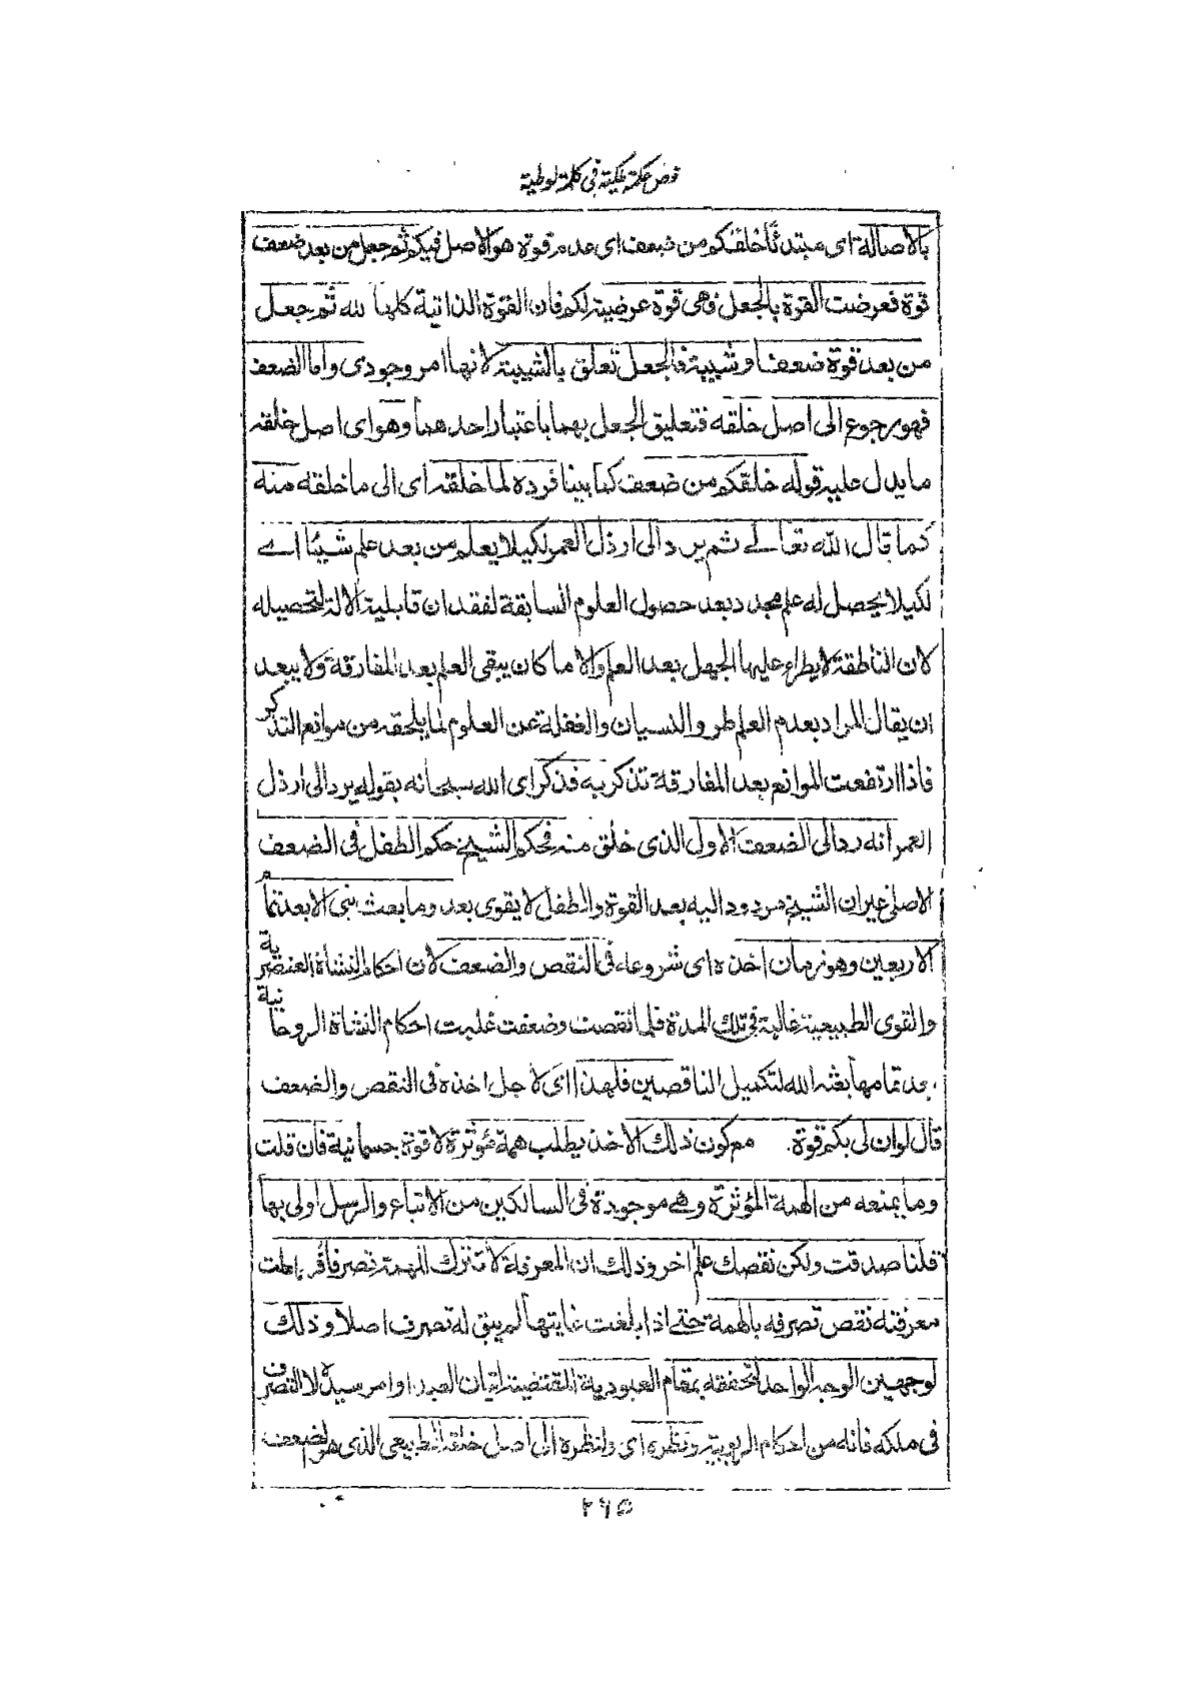 فص حكمة ملكية في كلمة لوطية
بالاصالة اى مبتدئا خلقكم من ضعف اى عدم قوة هو الاصل فيكم ثم جعل من بعد ضعف
قوة فعرضت القوة بالجعل فهى قوة عرضية لكم فان القوة الذاتية كلها لله ثم جعل
من بعد قوة ضعفا وشيبة فالجعل تعلق بالشيبة لانها امر وجودى واما الضعف
فهو رجوع الى اصل خلقه فتعليق الجعل بهما باعتبار احدهما وهو اى اصل خلقه
ما يدل عليه قوله خلقكم من ضعف كما بينا فرده لما خلقه اى الى ما خلقه منه
كما قال الله تعالے ثم يرد الى ارذل العمر لكيلا يعلم من بعد علم شيئا اے
لكيلا يحصل له علم مجدد بعد حصول العلوم السابقة لفقدان قابلية الالة لتحصيله
لان الناطقة لا يطراء عليها الجهل بعد العلم والا ما كان يبقى العلم بعد المفارقة ولا يبعد
ان يقال المراد بعدم العلم طرو النسيان والغفلة عن العلوم لما يلحقه من موانع التذكر
فاذا ارتفعت الموانع بعد المفارقة تذكر به فذكر اى الله سبحانه بقوله يرد الى ارذل
العمر انه رد الى الضعف الاول الذى خلق منه فحكم الشيخ حكم الطفل فى الضعف
الاصلى غير ان الشيخ مردود اليه بعد القوة والطفل لا يقوى بعد وما بعث نبى الا بعد تمام
الاربعين وهو زمان اخذه اى شروعه فى النقص والضعف لان احكام النشاة العنصرية
والقوى الطبيعية غالبة فى تلك المدة فلما نقصت وضعفت غلبت احكام النشاة الروحانية
بعد تمامها بعثه الله لتكميل الناقصين فلهذا اى لاجل اخذه فى النقص والضعف
قال لو ان لى بكم قوة. مع كون ذلك الاخذ يطلب همة مؤثرة لا قوة جسمانية فان قلت
وما يمنعه من الهمة المؤثرة وهے موجودة فى السالكين من الاتباع والرسل اولى بها
قلنا صدقت ولكن نقصك علم اخر وذلك ان المعرفة لا تترك للهمة تصرفا فكلما علت
معرفته نقص تصرفه بالهمة حتے اذا بلغت غايتها لم يبق له تصرف اصلا وذلك
لوجهين الوجه الواحد لتحققه بمقام العبودية المقتضية اتيان العبد اوامر سيده لا التصرف
فى ملكه فانه من احكام الربوبية ونظره اى ولنظره الى اصل خلقه الطبيعى الذى هو الضعف
٢٦٥